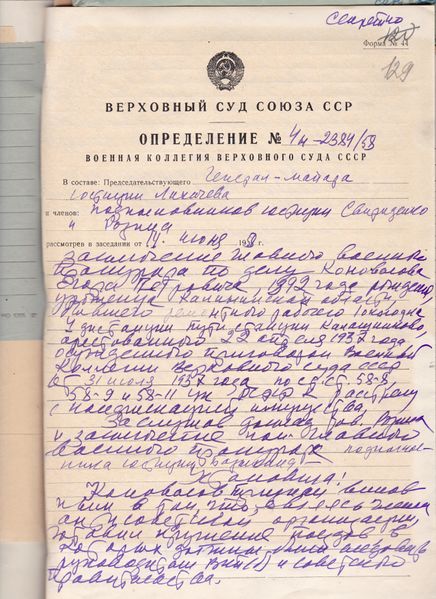 Секретно
Форма № 44
120
129
ВЕРХОВНЫЙ СУД СОЮЗА ССР
ОПРЕДЕЛЕНИЕ № 4н-2384/58
ВОЕННАЯ КОЛЛЕГИЯ ВЕРХОВНОГО СУДА СССР
В составе: Председательствующего генерал-майора
юстиции Лихачева
и членов: подполковников юстиции Свириденко
и
рассмотрев в заседании от 11 июня 1958 г.
заключение главного военного
прокурора по делу Коновалова
Егора Петровича, 1892 года рождения,
уроженца Калининской области,
бывшего ремонтного рабочего
4 дистанции пути станции Калашниково,
арестованного 22 апреля 1937 года,
осужденного приговором Военной
Коллегии Верховного суда СССР
от 31 июля 1937 года по ст.ст. 58-8,
58-9 и 58-11 УК РСФСР к расстрелу
с конфискацией имущества.
Заслушав доклад тов.
и заключение пом. главного
военного прокурора подполков-
ника юстиции
установила:
Коновалов признан винов
ным в том, что являясь членом
антисоветской организации,
готовил крушение поездов, в
которых должны были следовать
руководители ВКП(б) и советского
правительства.